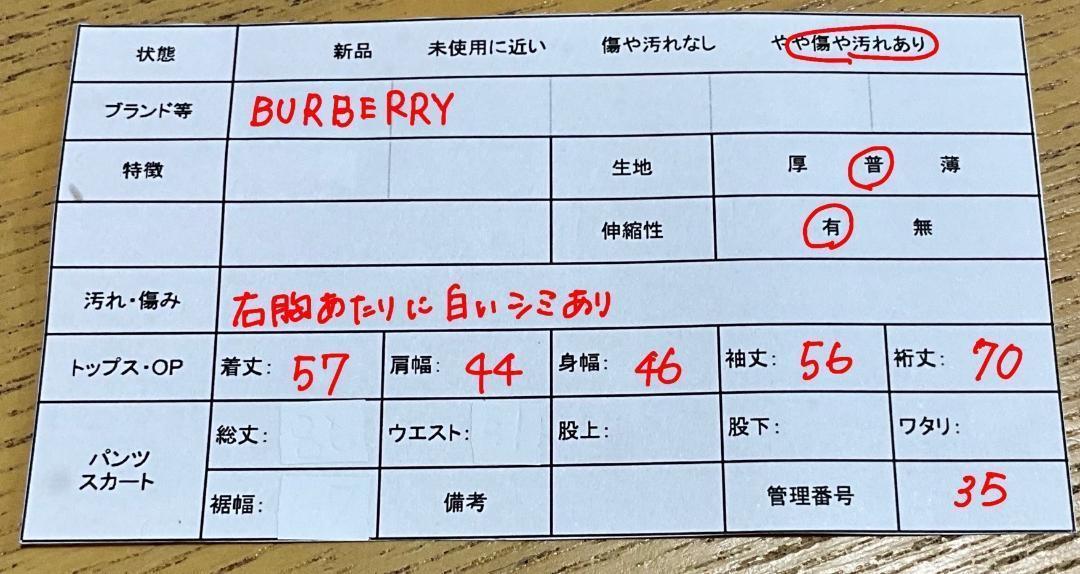 状態 新品 未使用に近い 傷や汚れなし やや傷や汚れあり
ブランド等 BURBERRY
特徴 生地 厚 普 薄
伸縮性 有 無
汚れ・傷み 右胸あたりに白いシミあり
トップス・OP 着丈: 57 肩幅: 44 身幅: 46 袖丈: 56 裄丈: 70
パンツ
スカート
総丈: ウエスト: 股上: 股下: ワタリ:
裾幅: 備考 管理番号 35